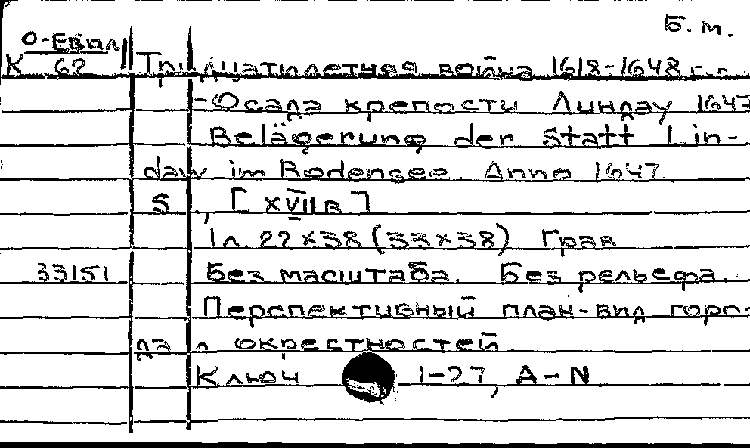 Б. м.
О-Евал
К 62 Тридцатилетняя война 1618-1648 г.г.
- Осада крепости Линдау 1647
Belägerung der Statt Lin-
daw im Bodensee. Anno 1647
S , [XVII в]
1 л. 22×38 (33×38) Грав
33151 Без масштаба. Без рельефа.
Перспективный план-вид горо-
да и окрестностей
Ключ 1-27, А-N